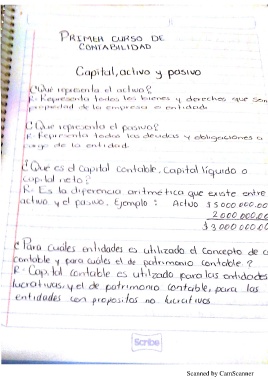 PRIMER CURSO DE
CONTABILIDAD
Capital, activo y pasivo
¿Qué representa el activo?
R- Representa todos los bienes y derechos que son
propiedad de la empresa o entidad
¿Que representa el pasivo?
R- Representa todos las deudas y obligaciones a
cargo de la entidad.
¿Qué es el capital contable, capital líquido o
capital neto?
R- Es la diferencia aritmética que existe entre
activo y el pasivo. Ejemplo: Activo $5 000 000.00
2 000 000.00
$3 000 000.00
¿Para cuales entidades es utilizado el concepto de c
contable y para cuáles el de patrimonio contable?
R- Capital contable es utilizado para las entidades
lucrativas y el de patrimonio contable, para las
entidades con propositos no lucrativos
Scribe
Scanned by CamScanner